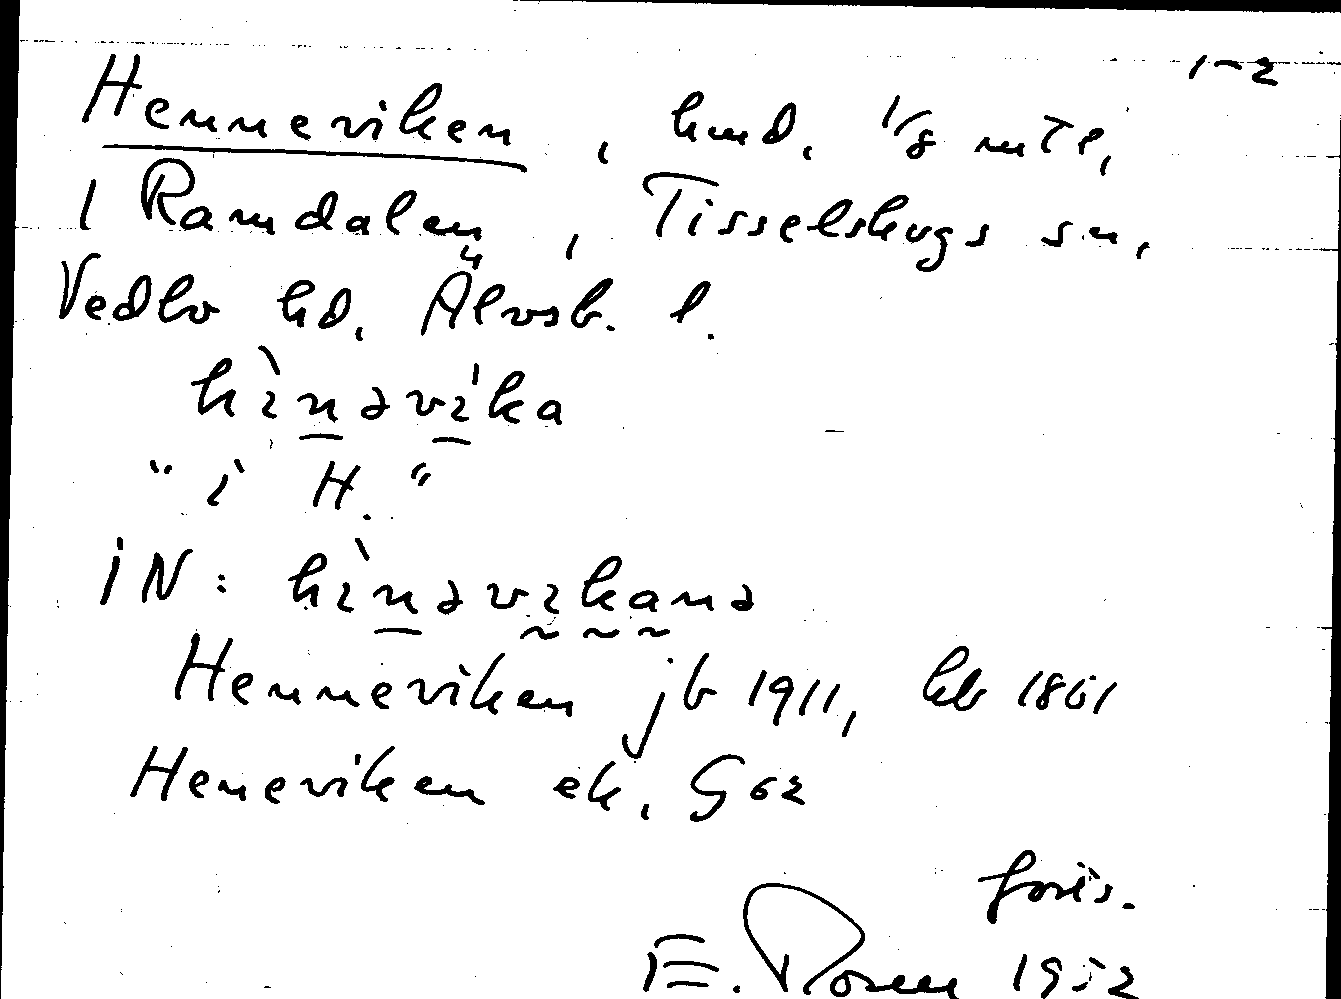 1-2
Henneviken, hmd. 1/8 mtl,
1 Ramdalen, Tisselskogs sn,
Vedbo hd, Älvsb. l.
hìnəvíka
"i H."
iN: hìnəvikanə
Henneviken jb 1911, kb 1861
Heneviken ek. G 62
forts.
E. Rosell 1952